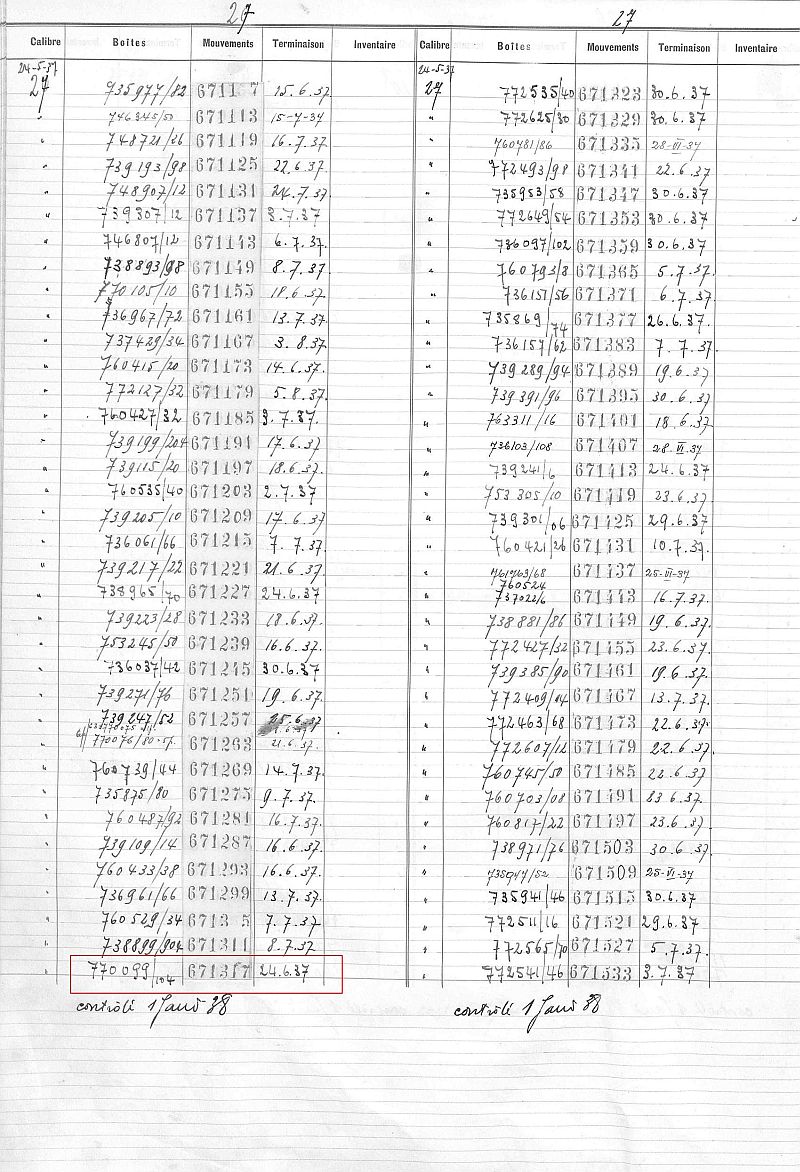 27 27
Calibre Boîtes Mouvements Terminaison Inventaire Calibre Boîtes Mouvements Terminaison Inventaire
24-5-37 24-5-37
27 735977/82 6711 7 15.6.37 27 772535/40 671323 30.6.37
" 746345/50 671113 15-7-37 " 772625/30 671329 30.6.37
" 748721/26 671119 16.7.37 760781/86 671335 28-VI-37
" 739193/98 671125 22.6.37 " 772493/98 671341 22.6.37
" 748907/12 671131 24.7.37 " 735953/58 671347 30.6.37
" 739307/12 671137 3.7.37 " 772649/54 671353 30.6.37
" 746807/12 671143 6.7.37 " 736097/102 671359 30.6.37
" 738893/98 671149 8.7.37 " 760793/8 671365 5.7.37
" 770105/10 671155 18.6.37 " 736151/56 671371 6.7.37
" 736967/72 671161 13.7.37 " 735869/74 671377 26.6.37
" 737429/34 671167 3.8.37 " 736157/62 671383 7.7.37
" 760415/20 671173 14.6.37 " 739289/94 671389 19.6.37
" 772127/32 671179 5.8.37 " 739391/96 671395 30.6.37
" 760427/32 671185 3.7.37 " 763311/16 671401 18.6.37
" 739199/204 671191 17.6.37 " 736103/108 671407 28.VI.37
" 739115/20 671197 18.6.37 " 739241/6 671413 24.6.37
" 760535/40 671203 2.7.37 " 753305/10 671419 23.6.37
" 739205/10 671209 17.6.37 " 739301/06 671425 29.6.37
" 736061/66 671215 7.7.37 " 760421/26 671431 10.7.37
" 739217/22 671221 21.6.37 " 671437 25-VI-37
" 738965/70 671227 24.6.37 " 760524 737022/6 671443 16.7.37
" 739223/28 671233 18.6.37 " 738881/86 671449 19.6.37
" 753245/50 671239 16.6.37 " 772427/32 671455 23.6.37
" 736037/42 671245 30.6.37 " 739385/90 671461 19.6.37
" 739271/76 671251 19.6.37 " 772409/14 671467 13.7.37
" 739247/52 671257 25.6.37 " 772463/68 671473 22.6.37
770076/80 671263 21.6.37 " 772607/12 671479 22.6.37
" 760739/44 671269 14.7.37 " 760745/50 671485 22.6.37
" 735875/80 671275 9.7.37 " 760703/08 671491 23.6.37
" 760487/92 671281 16.7.37 " 760817/22 671497 23.6.37
" 739109/14 671287 16.6.37 " 738971/76 671503 30.6.37
" 760433/38 671293 16.6.37 " 735947/52 671509 25-VI-37
" 736961/66 671299 13.7.37 " 735941/46 671515 30.6.37
" 760529/34 6713 5 7.7.37 " 772511/16 671521 29.6.37
" 738899/904 671311 8.7.37 " 772565/70 671527 5.7.37
" 770099/104 671317 24.6.37 " 772541/46 671533 3.7.37
contrôlé 1 Janv 38 contrôlé 1 Janv 38